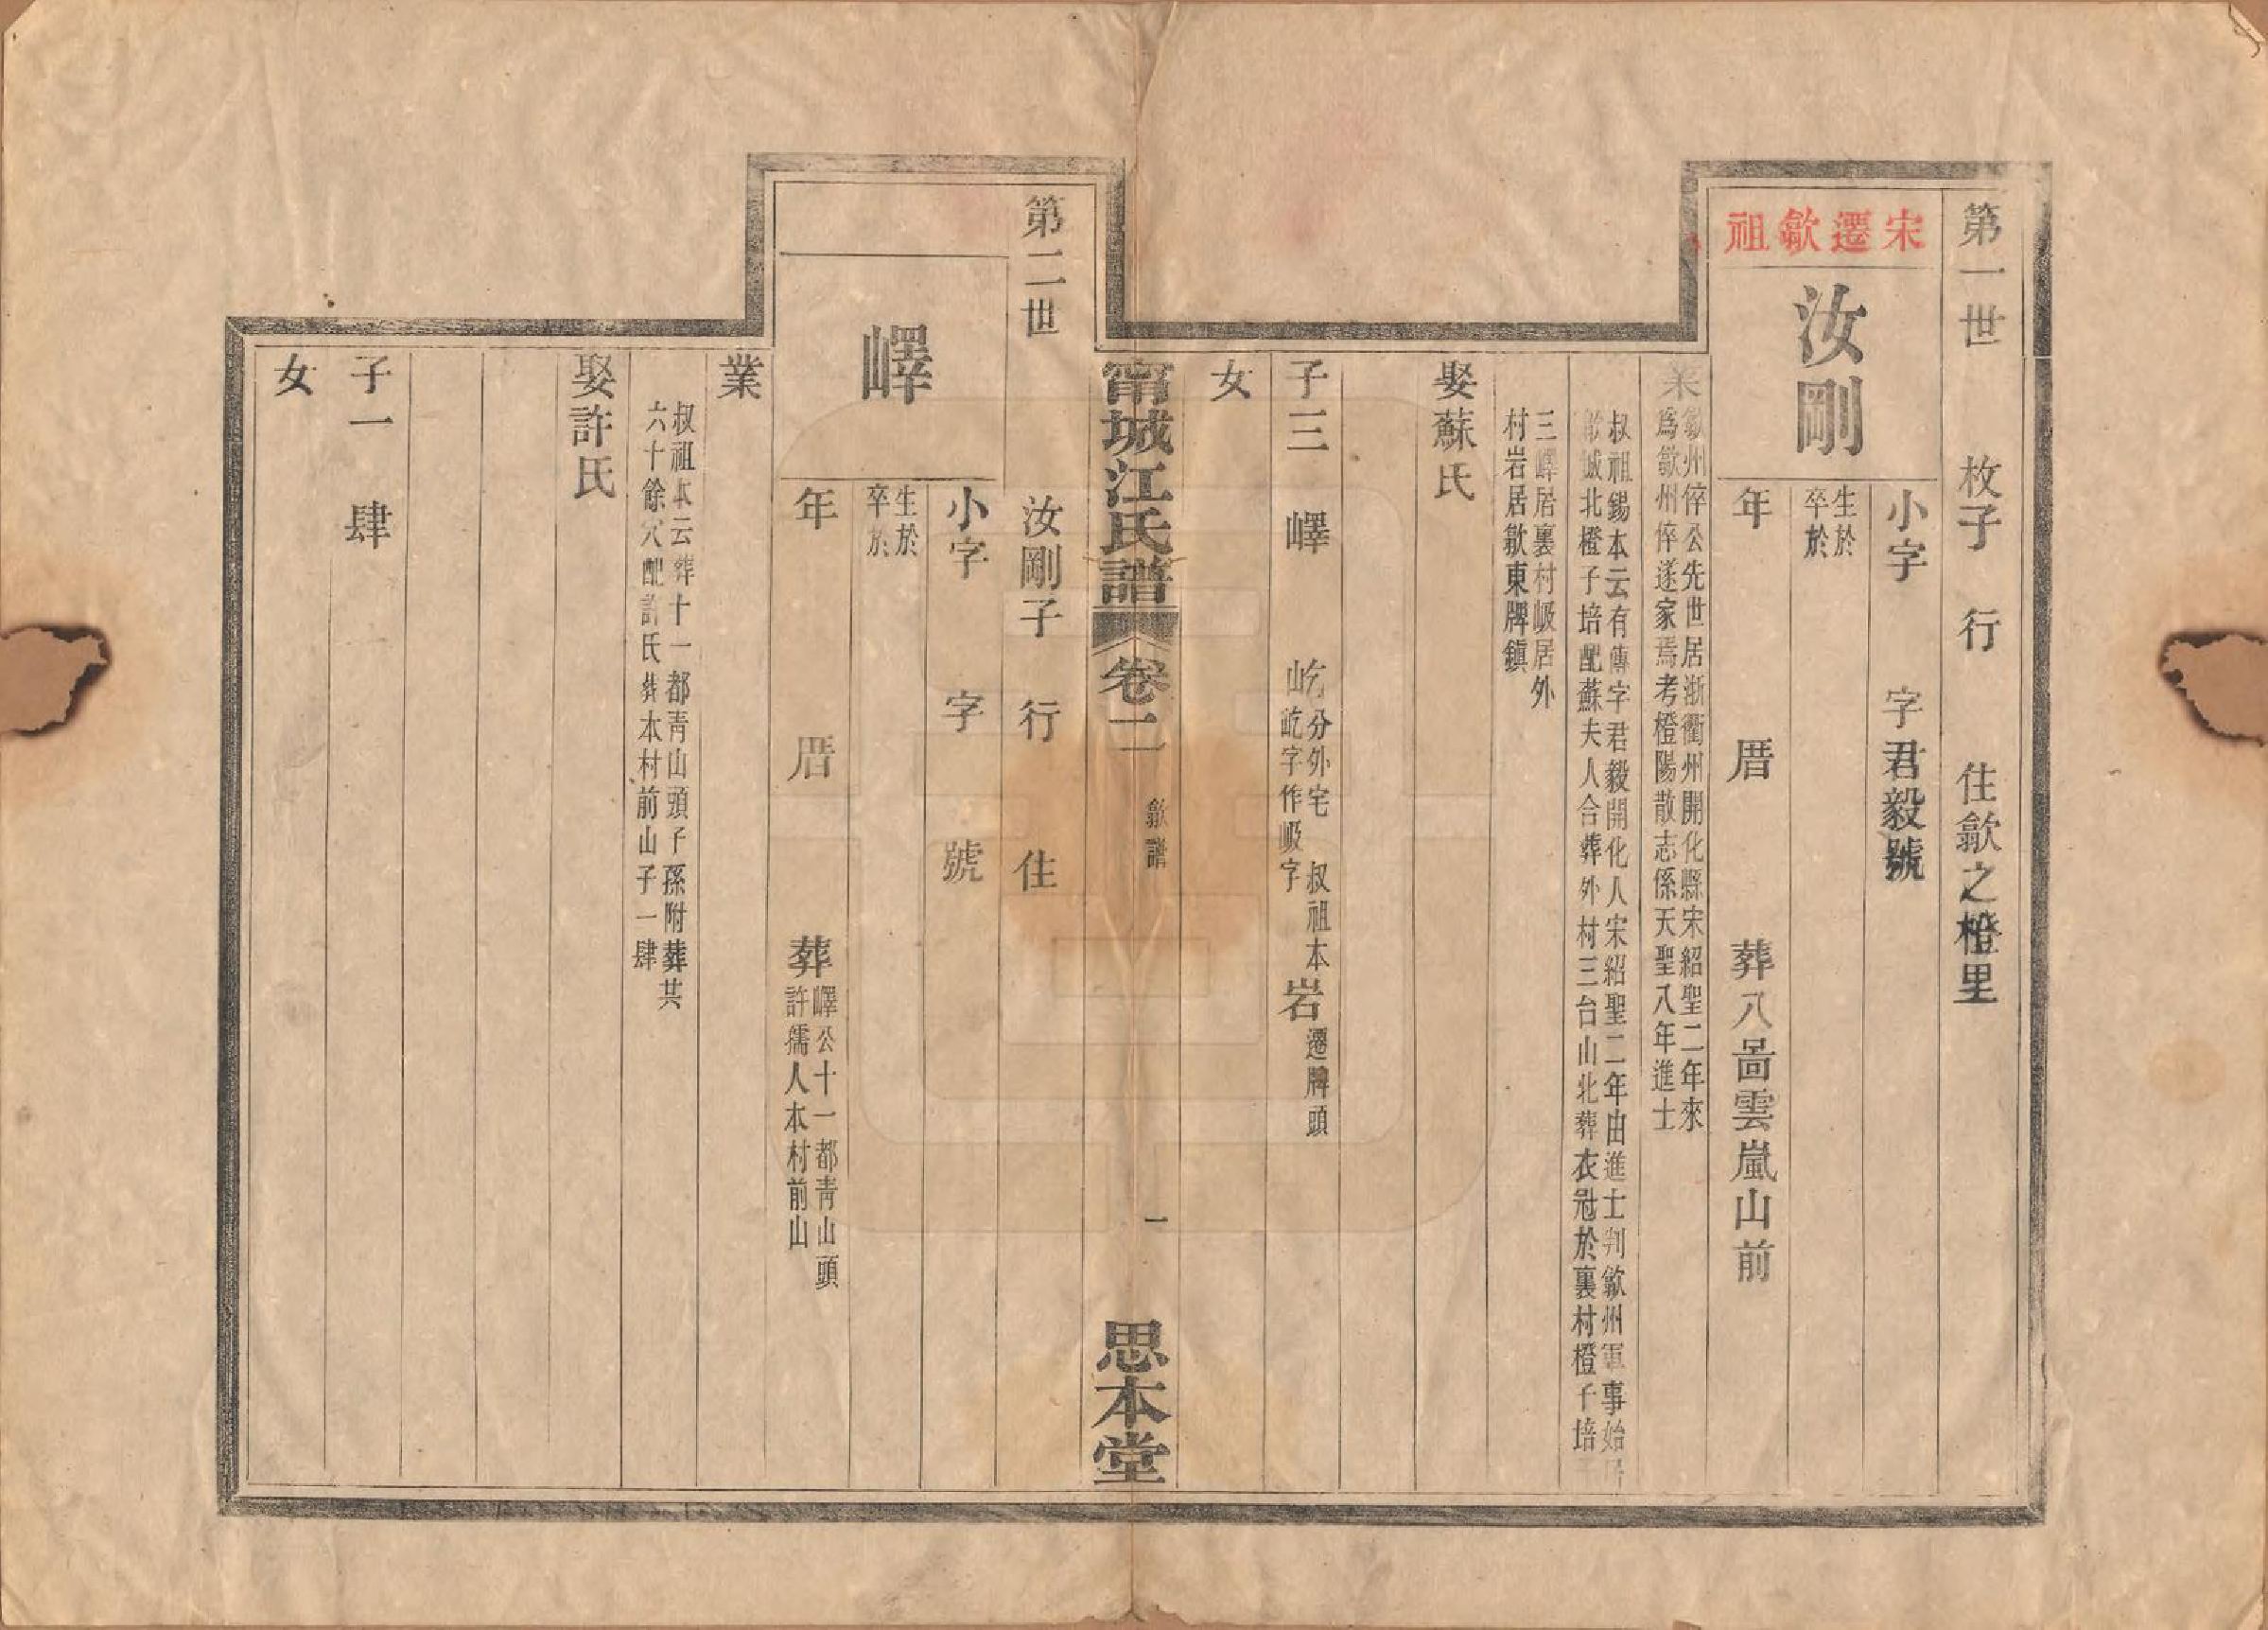 第一世 枚子 行 住歙之橙里
宋遷歙祖
汝剛
小字 字君毅號
生於
卒於
年 厝 葬八啚雲嵐山前
業
歙州倅公先世居浙衢州開化縣宋紹聖二年來
爲歙州倅遂家焉考橙陽散志係天聖八年進士
叔祖錫本云有傳字君毅開化人宋紹聖二年由進士判歙州軍事始居
歙城北橙子培配蘇夫人合葬外村三台山北葬衣冠於裏村橙子培
三嶧居裏村岋居外
村岩居歙東牌鎮
娶蘇氏
子三 嶧 屹分外宅 叔祖本岩遷牌頭
屹字作岋字
女
甯城江氏譜 卷二 歙譜 一 思本堂
第二世 汝剛子 行 住
嶧
小字 字 號
生於
卒於
年 厝 葬
嶧公十一都青山頭
許孺人本村前山
業
叔祖本云葬十一都青山頭子孫附葬共
六十餘穴配許氏葬本村前山子一肆
娶許氏
子一 肆
女